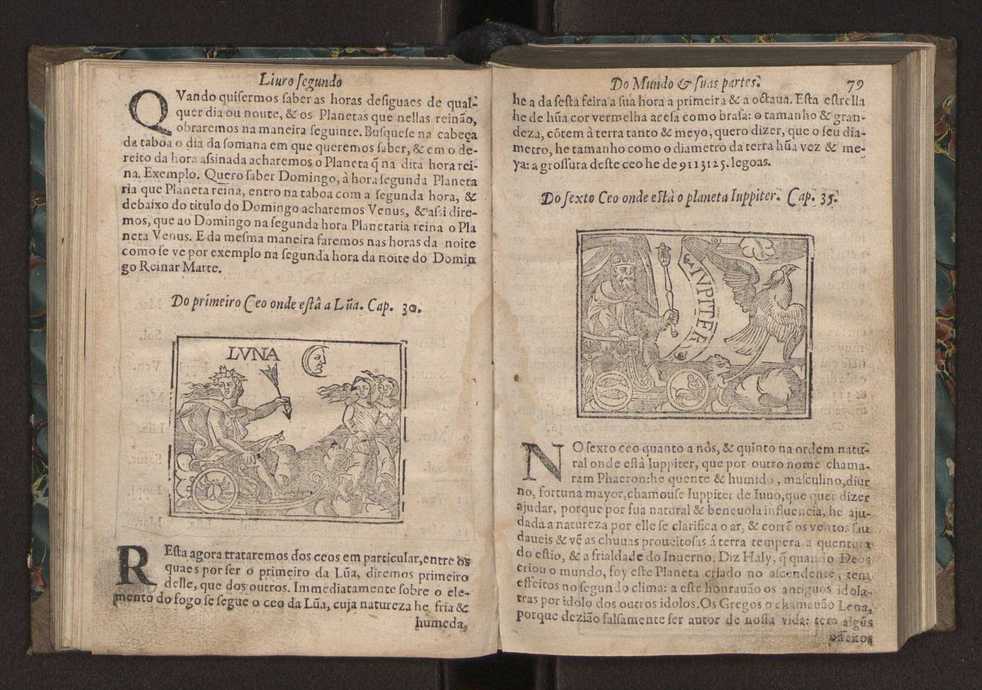 Liuro segundo
QVando quisermos saber as horas desiguaes de qual-
quer dia ou noute, & os Planetas que nellas reinão,
obraremos na maneira seguinte. Busquese na cabeça
da taboa o dia da somana em que queremos saber, & em o de-
reito da hora assinada acharemos o Planeta q̃ na dita hora rei-
na. Exemplo. Quero saber Domingo, à hora segunda Planeta
ria que Planeta reina, entro na taboa com a segunda hora, &
debaixo do titulo do Domingo acharemos Venus, & assi dire-
mos, que ao Domingo na segunda hora Planetaria reina o Pla
neta Venus. E da mesma maneira faremos nas horas da noite
como se ve por exemplo na segunda hora da noite do Domin
go Reinar Marte.
Do primeiro Ceo onde està a Lũa. Cap. 30.
LVNA
REsta agora trataremos dos ceos em particular, entre os
quaes por ser o primeiro da Lũa, diremos primeiro
delle, que dos outros. Immediatamente sobre o ele-
mento do fogo se segue o ceo da Lũa, cuja natureza he fria &
humeda,
Do Mundo & suas partes. 79
he a da sesta feira a sua hora a primeira & a octaua. Esta estrella
he de hũa cor vermelha acesa como brasa: o tamanho & gran-
deza, cõtem à terra tanto & meyo, quero dizer, que o seu dia-
metro, he tamanho como o diametro da terra hũa vez & me-
ya: a grossura deste ceo he de 9113125. legoas.
Do sexto Ceo onde està o planeta Iuppiter. Cap. 35.
IVPITER
NO sexto ceo quanto a nòs, & quinto na ordem natu-
ral onde està Iuppiter, que por outro nome chama-
ram Phaeron: he quente & humido, masculino, diur
no, fortuna mayor, chamouse Iuppiter de Iuno, que quer dizer
ajudar, porque por sua natural & beneuola influencia, he aju-
dada a natureza por elle se clarifica o ar, & corrẽ os ventos sau
daueis & vẽ as chuuas proueitosas à terra tempera a quentura
do estio, & a frialdade do Inuerno. Diz Haly, q̃ quando Deos
criou o mundo, foy este Planeta criado no ascendense, tem
effeitos no segundo clima: a este honrauão os antiguos idola-
tras por idolo dos outros idolos. Os Gregos o chamauão Lena,
porque dezião falsamente ser autor de nossa vida: tem algũs